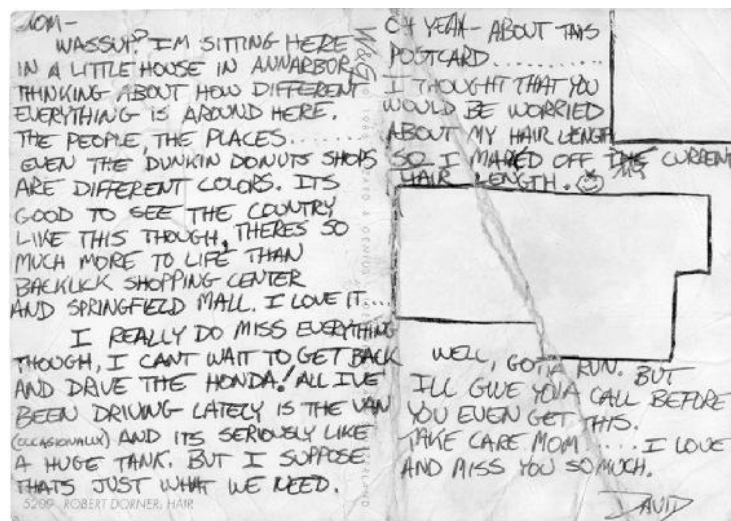 MOM-
WASSUP? IM SITTING HERE
IN A LITTLE HOUSE IN ANNARBOR,
THINKING ABOUT HOW DIFFERENT
EVERYTHING IS AROUND HERE.
THE PEOPLE, THE PLACES.......
EVEN THE DUNKIN DONUTS SHOPS
ARE DIFFERENT COLORS. ITS
GOOD TO SEE THE COUNTRY
LIKE THIS THOUGH, THERES SO
MUCH MORE TO LIFE THAN
BACKLICK SHOPPING CENTER
AND SPRINGFIELD MALL. I LOVE IT....
I REALLY DO MISS EVERYTHING
THOUGH, I CANT WAIT TO GET BACK
AND DRIVE THE HONDA! ALL IVE
BEEN DRIVING LATELY IS THE VAN
(OCCASIONALLY) AND ITS SERIOUSLY LIKE
A HUGE TANK. BUT I SUPPOSE
THATS JUST WHAT WE NEED.
5209 ROBERT DORNER, HAIR
OH YEAH- ABOUT THIS
POSTCARD...........
I THOUGHT THAT YOU
WOULD BE WORRIED
ABOUT MY HAIR LENGTH
SO I MARKED OFF THE CURRENT
MY
HAIR LENGTH.
WELL, GOTTA RUN. BUT
ILL GIVE YOU A CALL BEFORE
YOU EVEN GET THIS.
TAKE CARE MOM..... I LOVE
AND MISS YOU SO MUCH.
DAVID